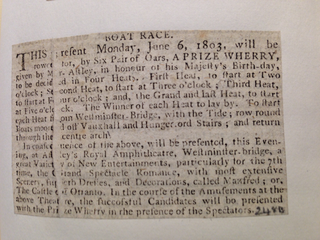 BOAT RACE.
THIS present Monday, June 6, 1803, will be
rowed for, by Six Pair of Oars, A PRIZE WHERRY,
given by Mr. Astley, in honour of his Majesty's Birth-day,
to be decided in Four Heats. First Heat, to start at Two
o'clock; Second Heat, to start at Three o'clock; Third Heat,
to start at Four o'clock; and, the Grand and last Heat, to start
at Five o'clock. The Winner of each Heat to lay by. To start
each Heat from Westminster-Bridge, with the Tide; row round
Boats moored off Vauxhall and Hungerford Stairs; and return
through the centre arch
In consequence of the above, will be presented, this Even-
ing, at Astley's Royal Amphitheatre, Westminster-bridge, a
great Variety of New Entertainments, particularly for the 7th
time, the Grand Spectacle Romance, with most extensive
Scenery, Superb Dresses, and Decorations, called Manfred; or,
The Castle of Otranto. In the course of the Amusements at the
above Theatre, the successful Candidates will be presented
with the Prize Wherry in the presence of the Spectators.